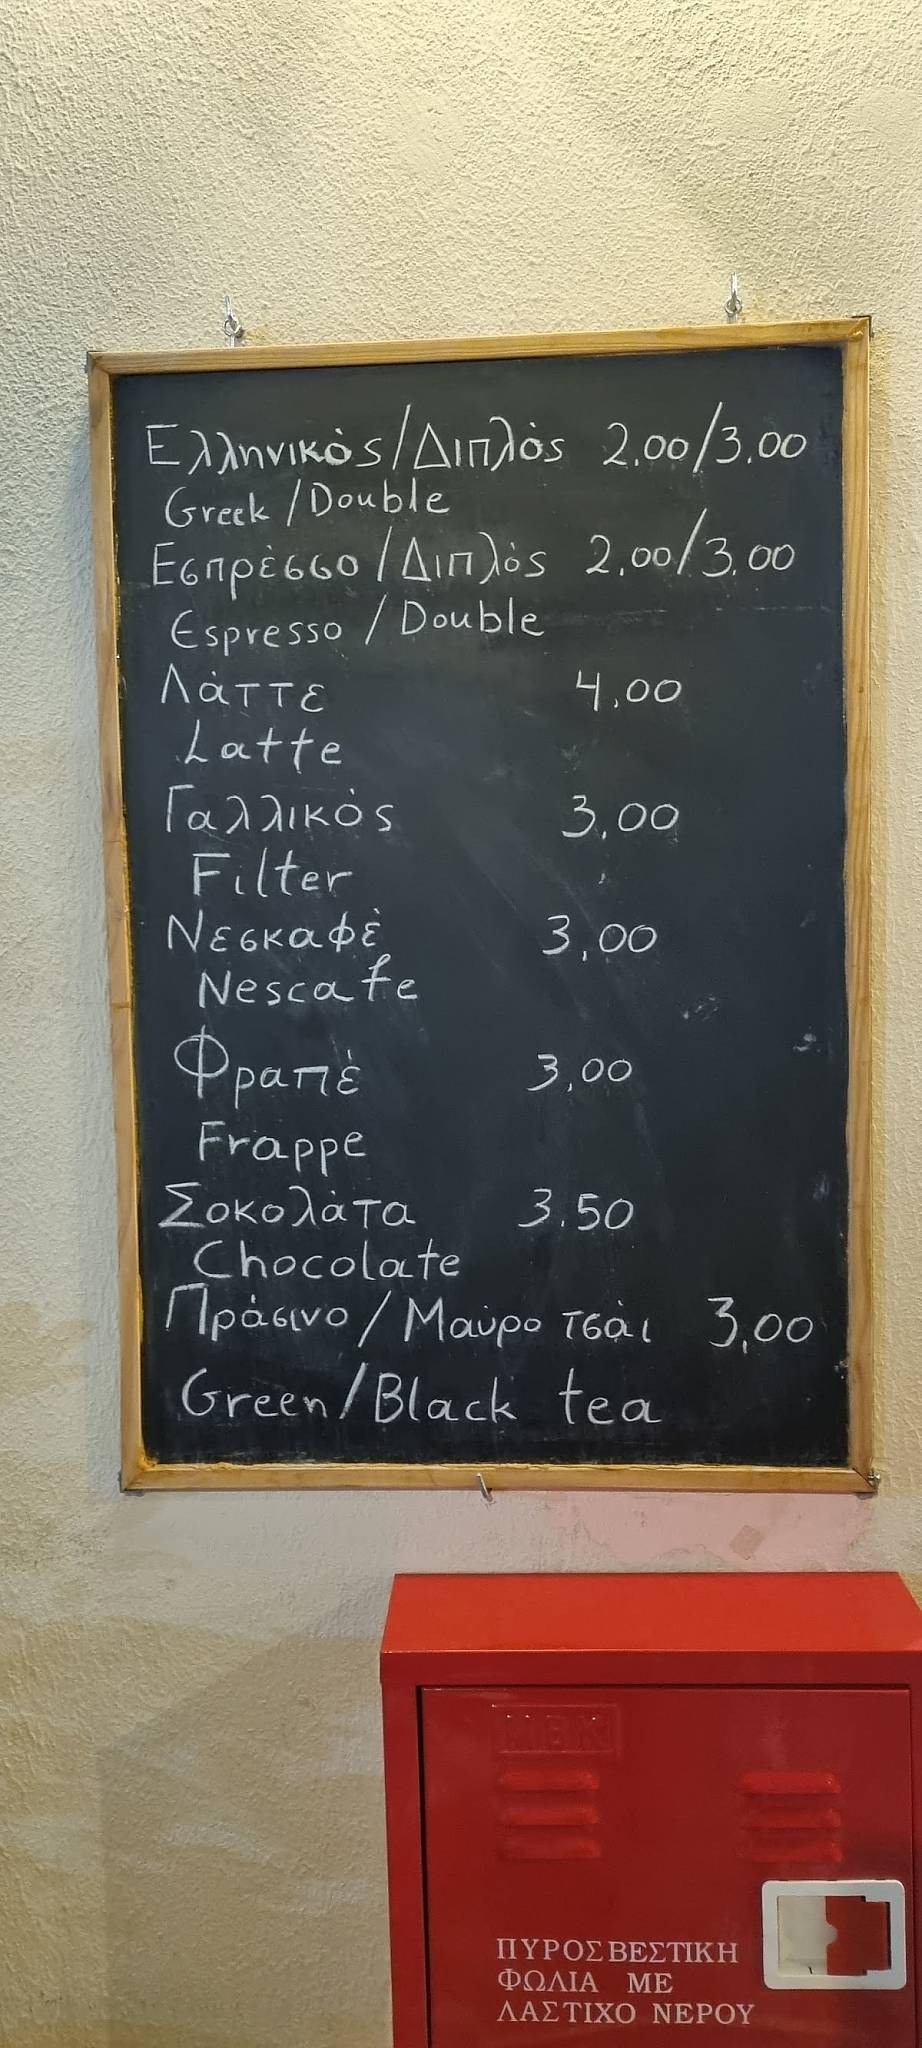 Ελληνικὸς/Διπλὸς 2.00/3.00
Greek/Double
Εσπρὲσσο/Διπλὸς 2.00/3.00
Espresso/Double
Λὰττε 4.00
Latte
Γαλλικὸς 3.00
Filter
Νεσκαφὲ 3.00
Nescafe
Φραπὲ 3,00
Frappe
Σοκολὰτα 3.50
Chocolate
Πρὰσινο/Μαὺρο τσὰι 3,00
Green/Black tea
ΠΥΡΟΣΒΕΣΤΙΚΗ
ΦΩΛΙΑ ΜΕ
ΛΑΣΤΙΧΟ ΝΕΡΟΥ